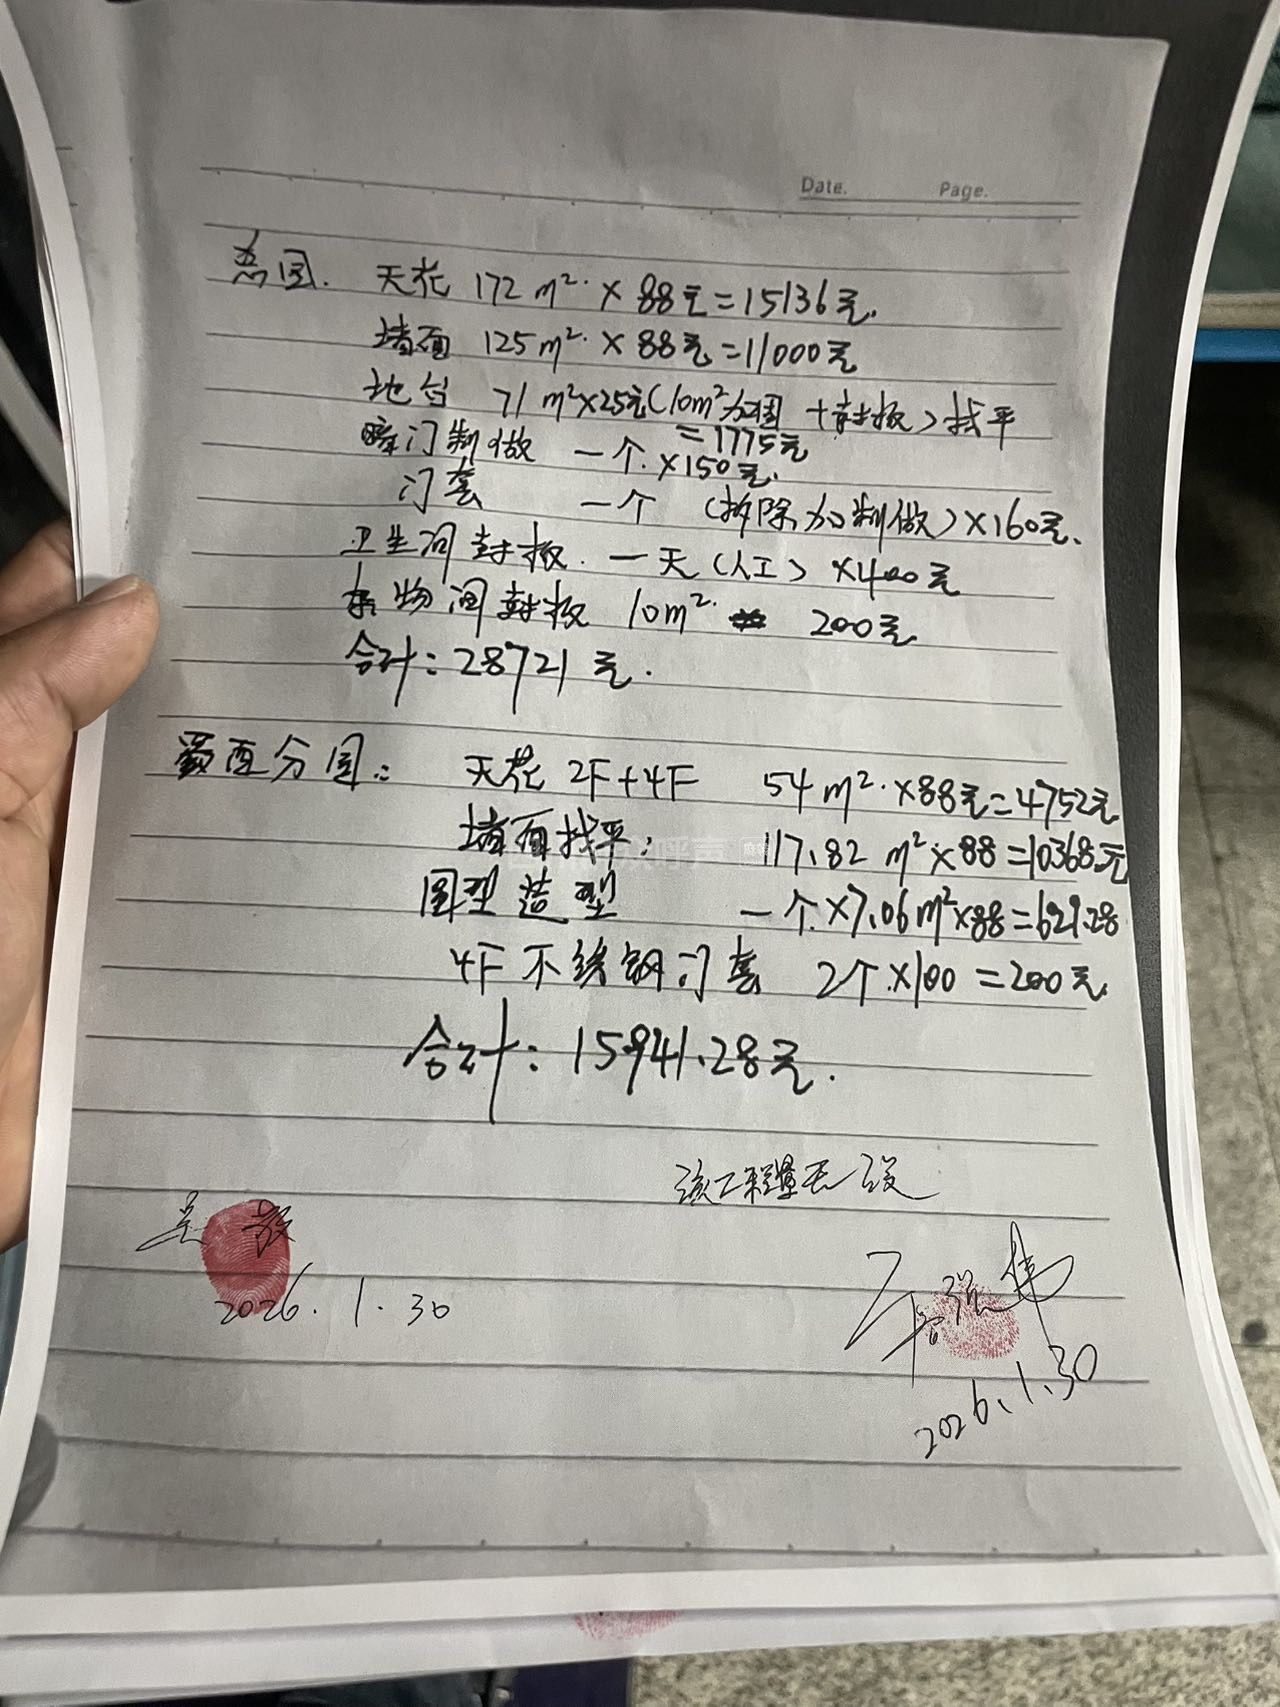 Date. Page.
总园. 天花 172m². × 88元=15136元.
墙面 125m². × 88元=11000元
地台 71m²×25元(10m²加固+封板)找平
=1775元
暗门制做 一个.×150元.
门套 一个 (拆除加制做)×160元.
卫生间封板. 一天(人工) ×400元
杂物间封板 10m². 200元
合计:28721元.
西分园: 天花 2F+4F 54m².×88元=4752元
墙面找平: 117.82m²×88=10368元
圆型造型 一个.×7.06m²×88=621.28
4F不锈钢门套 2个.×100=200元.
合计:15941.28元.
该工程量无误
2026.1.30
2026.1.30